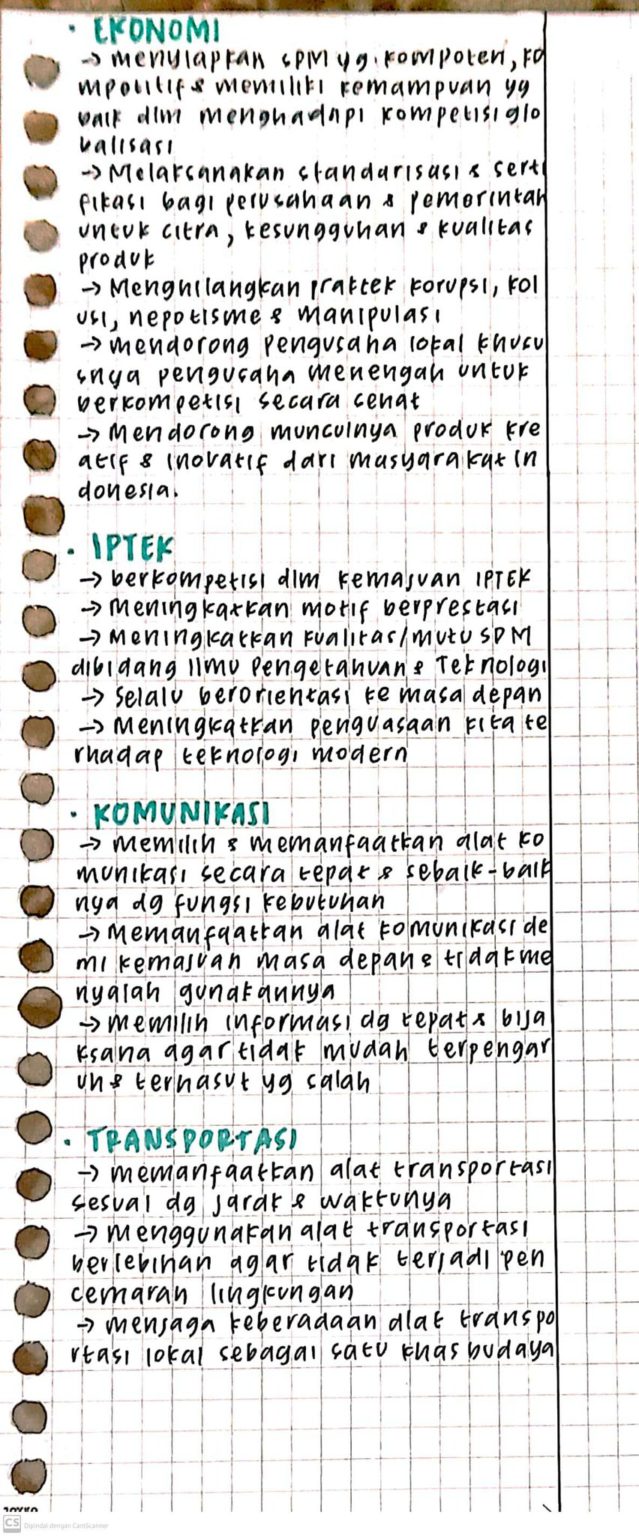 • EKONOMI
→ menyiapkan SDM yg. kompoten, ko
mpotitif & memiliki kemampuan yg
baik dlm menghadapi kompetisi glo
balisasi
→ Melaksanakan standarisasi & serti
fikasi bagi perusahaan & pemerintah
untuk citra, kesungguhan & kualitas
produk
→ Menghilangkan praktek korupsi, kol
usi, nepotisme & manipulasi
→ mendorong pengusaha lokal khusu
snya pengusaha menengah untuk
berkompetisi secara sehat
→ Mendorong munculnya produk kre
atif & inovatif dari masyarakat in
donesia.
• IPTEK
→ berkompetisi dlm kemajuan IPTEK
→ Meningkatkan motif berprestasi
→ Meningkatkan kualitas/mutu SDM
dibidang Ilmu Pengetahuan & Teknologi
→ Selalu berorientasi ke masa depan
→ Meningkatkan penguasaan kita te
rhadap teknologi modern
• KOMUNIKASI
→ Memilih & memanfaatkan alat ko
munikasi secara tepat & sebaik-baik
nya dg fungsi kebutuhan
→ Memanfaatkan alat komunikasi de
mi kemajuan masa depan & tidak me
nyalah gunakannya
→ memilih informasi dg tepat & bija
ksana agar tidak mudah terpengar
uh & terhasut yg salah
• TRANSPORTASI
→ memanfaatkan alat transportasi
sesuai dg jarak & waktunya
→ menggunakan alat transportasi
berlebihan agar tidak terjadi pen
cemaran lingkungan
→ menjaga keberadaan alat transpo
rtasi lokal sebagai satu khas budaya
JOYKO
CS Dipindai dengan CamScanner